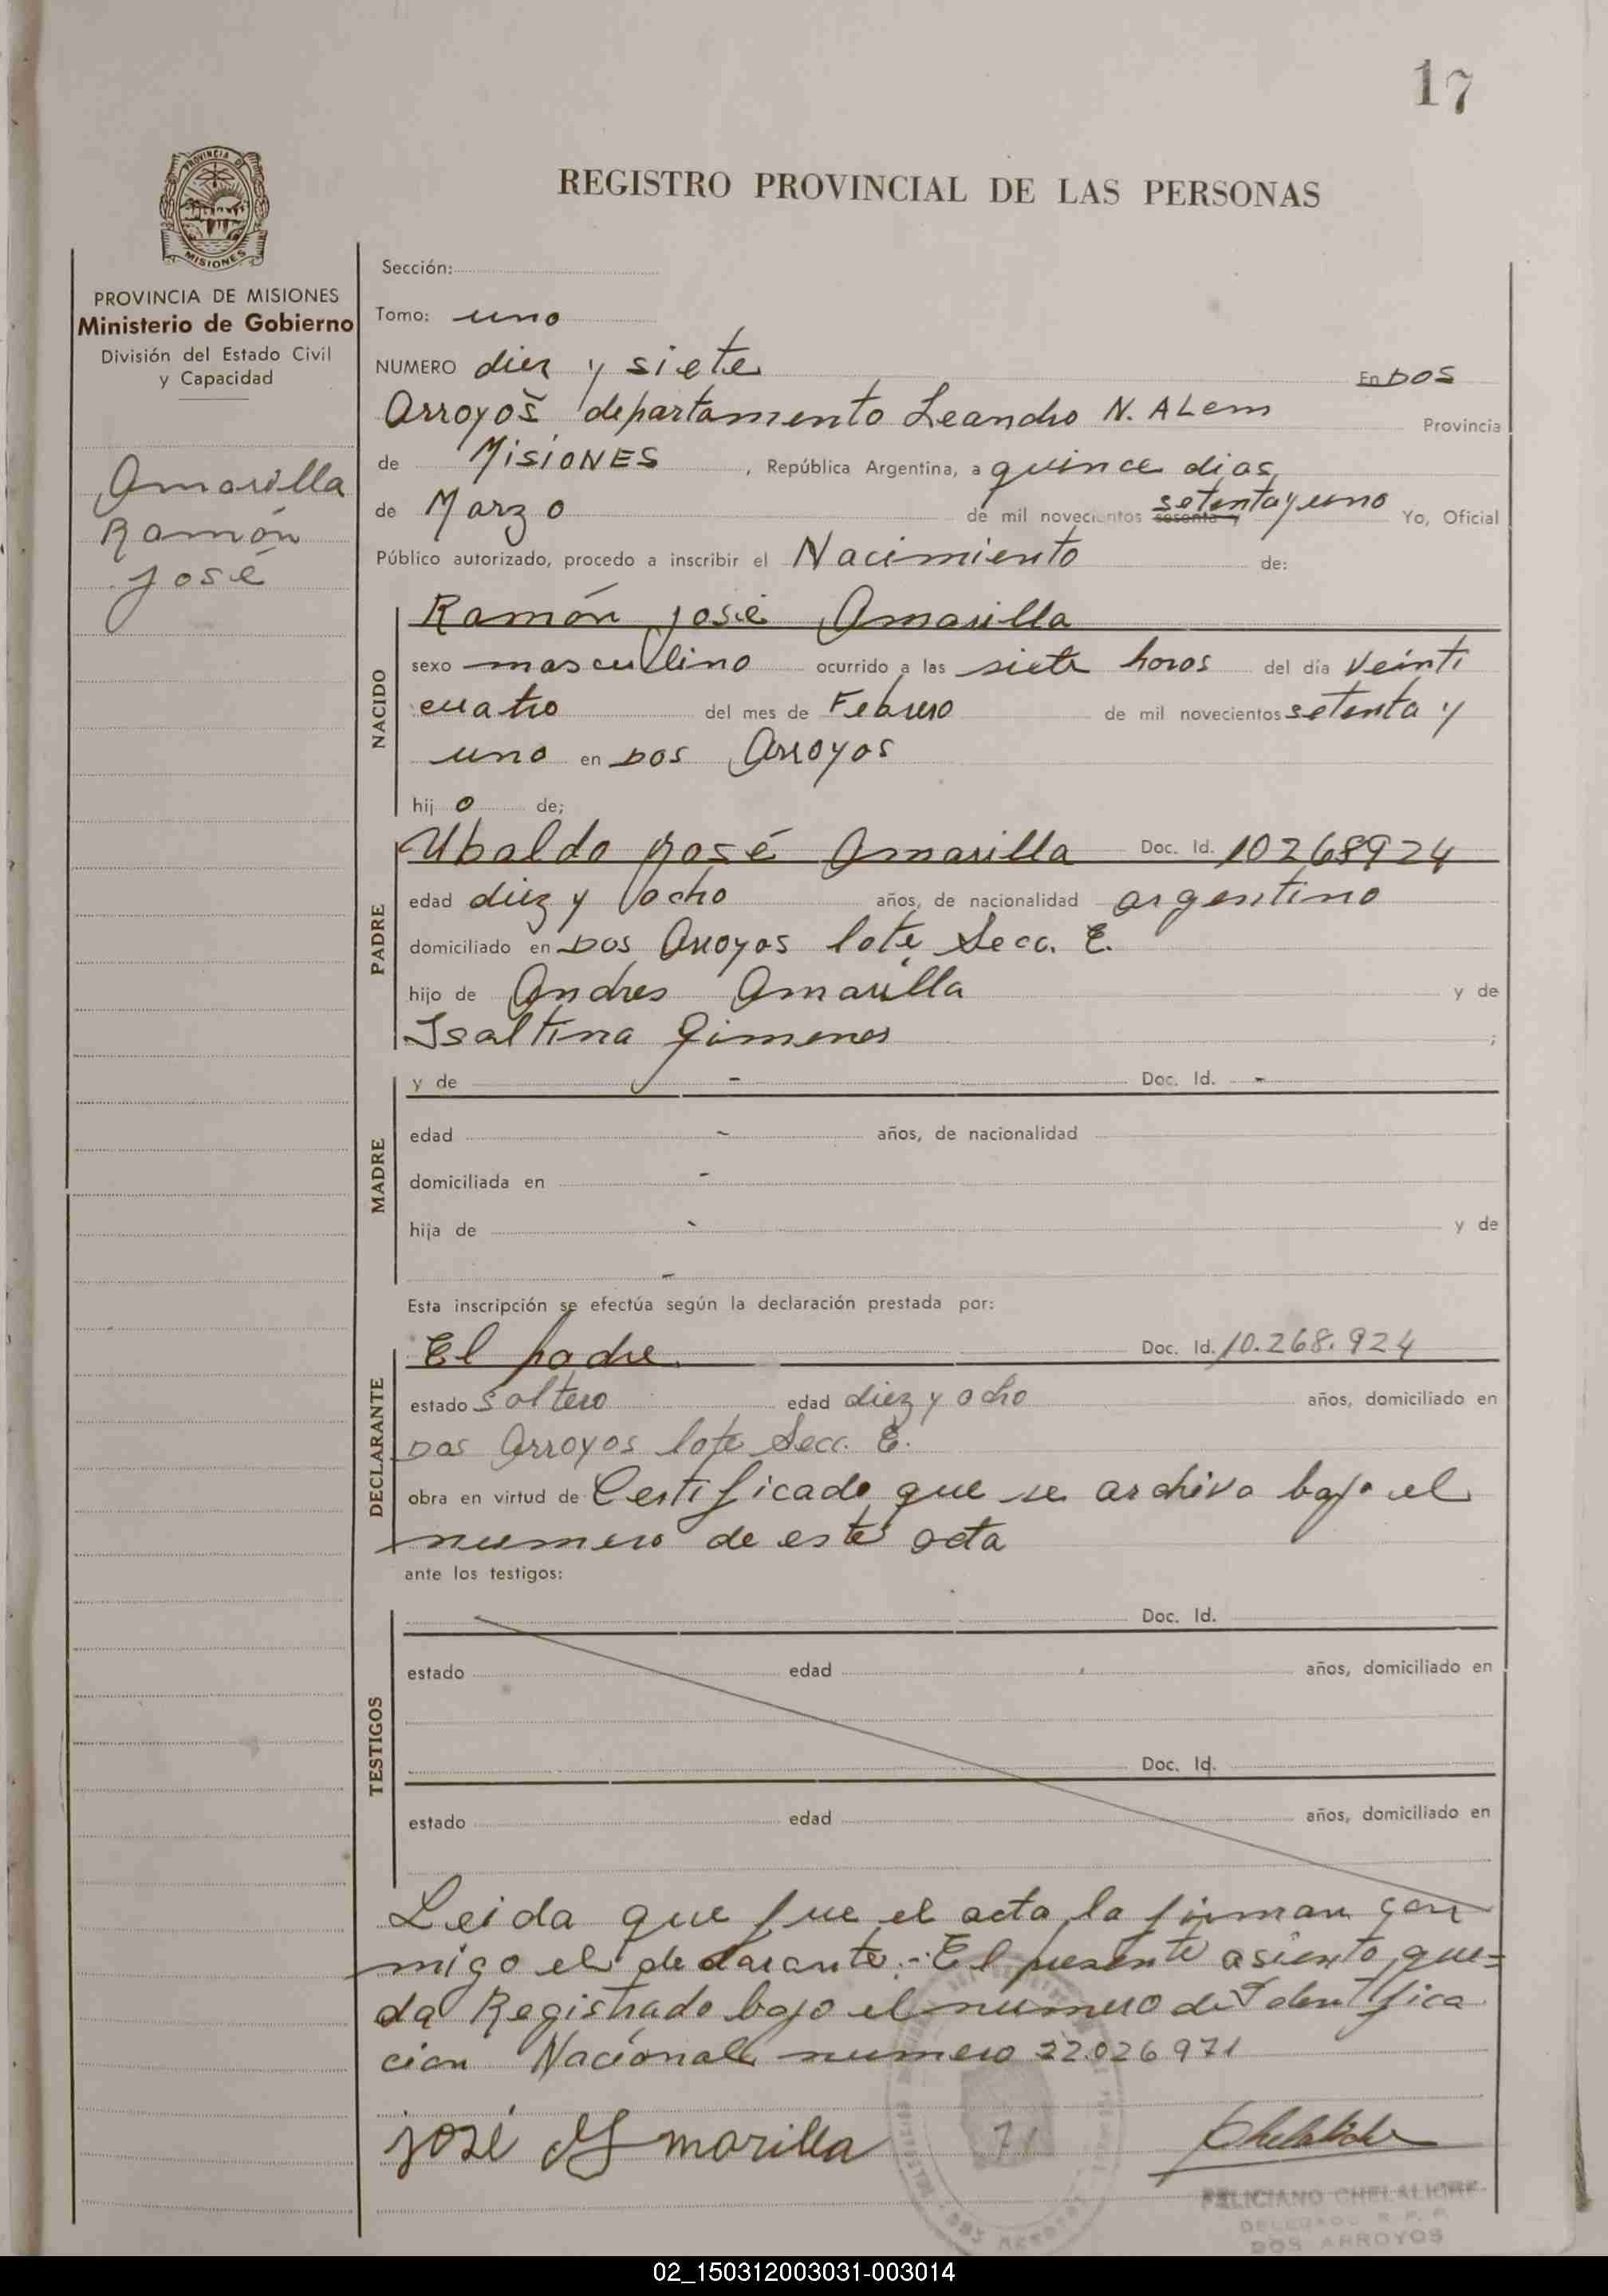 17
PROVINCIA DE
MISIONES
REGISTRO PROVINCIAL DE LAS PERSONAS
PROVINCIA DE MISIONES
Ministerio de Gobierno
División del Estado Civil
y Capacidad
Amarilla
Ramón
José
Sección:
Tomo: uno
NUMERO diez y siete En Dos
Arroyos departamento Leandro N. Alem Provincia
de Misiones, República Argentina, a quince dias
de Marzo de mil novecientos sesenta y setenta y uno Yo, Oficial
Público autorizado, procedo a inscribir el Nacimiento de:
NACIDO
Ramón José Amarilla
sexo masculino ocurrido a las siete horas del día Veinti
cuatro del mes de Febrero de mil novecientos setenta y
uno en Dos Arroyos
hijo de;
PADRE
Ubaldo José Amarilla Doc. Id. 10268924
edad diez y ocho años, de nacionalidad argentino
domiciliado en Dos Arroyos lote Secc. E.
hijo de Andres Amarilla y de
Isaltina Gimenes ;
MADRE
y de - Doc. Id. -
edad - años, de nacionalidad
domiciliada en -
hija de - y de
-
Esta inscripción se efectúa según la declaración prestada por:
DECLARANTE
El padre Doc. Id. 10.268.924
estado soltero edad diez y ocho años, domiciliado en
Dos Arroyos lote Secc. E.
obra en virtud de Certificado que se archiva bajo el
numero de este acta
ante los testigos:
TESTIGOS
Doc. Id.
estado edad años, domiciliado en
Doc. Id.
estado edad años, domiciliado en
Leida que fue el acta la firman con
migo el declarante.- El presente asiento que=
da Registrado bajo el numero de Identifica
cion Nacional numero 22.026971
José Amarilla
71
FELICIANO CHELALICHE
DELEGADO R. P. P.
DOS ARROYOS
02_150312003031-003014